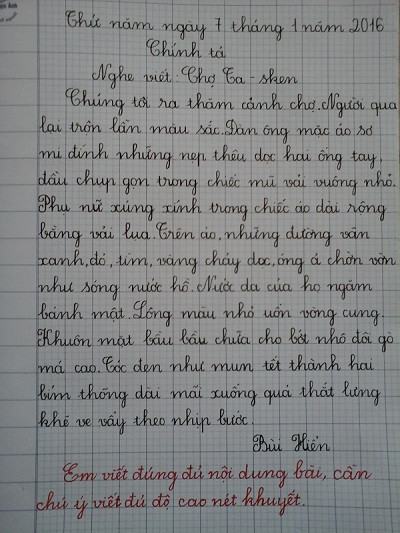 Thứ năm ngày 7 tháng 1 năm 2016
Chính tả
Nghe viết: Chợ Ta-sken
Chúng tôi ra thăm cảnh chợ. Người qua
lại trộn lẫn màu sắc. Đàn ông mặc áo sơ
mi đính những nẹp thêu dọc hai ống tay,
đầu chụp gọn trong chiếc mũ vải vuông nhỏ.
Phụ nữ xúng xính trong chiếc áo dài rộng
bằng vải lụa. Trên áo, những đường vân
xanh, đỏ, tím, vàng chảy dọc, óng ả chờn vờn
như sóng nước hồ. Nước da của họ ngăm
bánh mật. Lông màu nhỏ uốn vòng cung.
Khuôn mặt bầu bầu chữa cho bớt nhô đôi gò
má cao. Tóc đen như mun tết thành hai
bím thõng dài mãi xuống quá thắt lưng
khẽ ve vẩy theo nhịp bước.
Bùi Hiển
Em viết đúng đủ nội dung bài, cần
chú ý viết đủ độ cao nét khuyết.